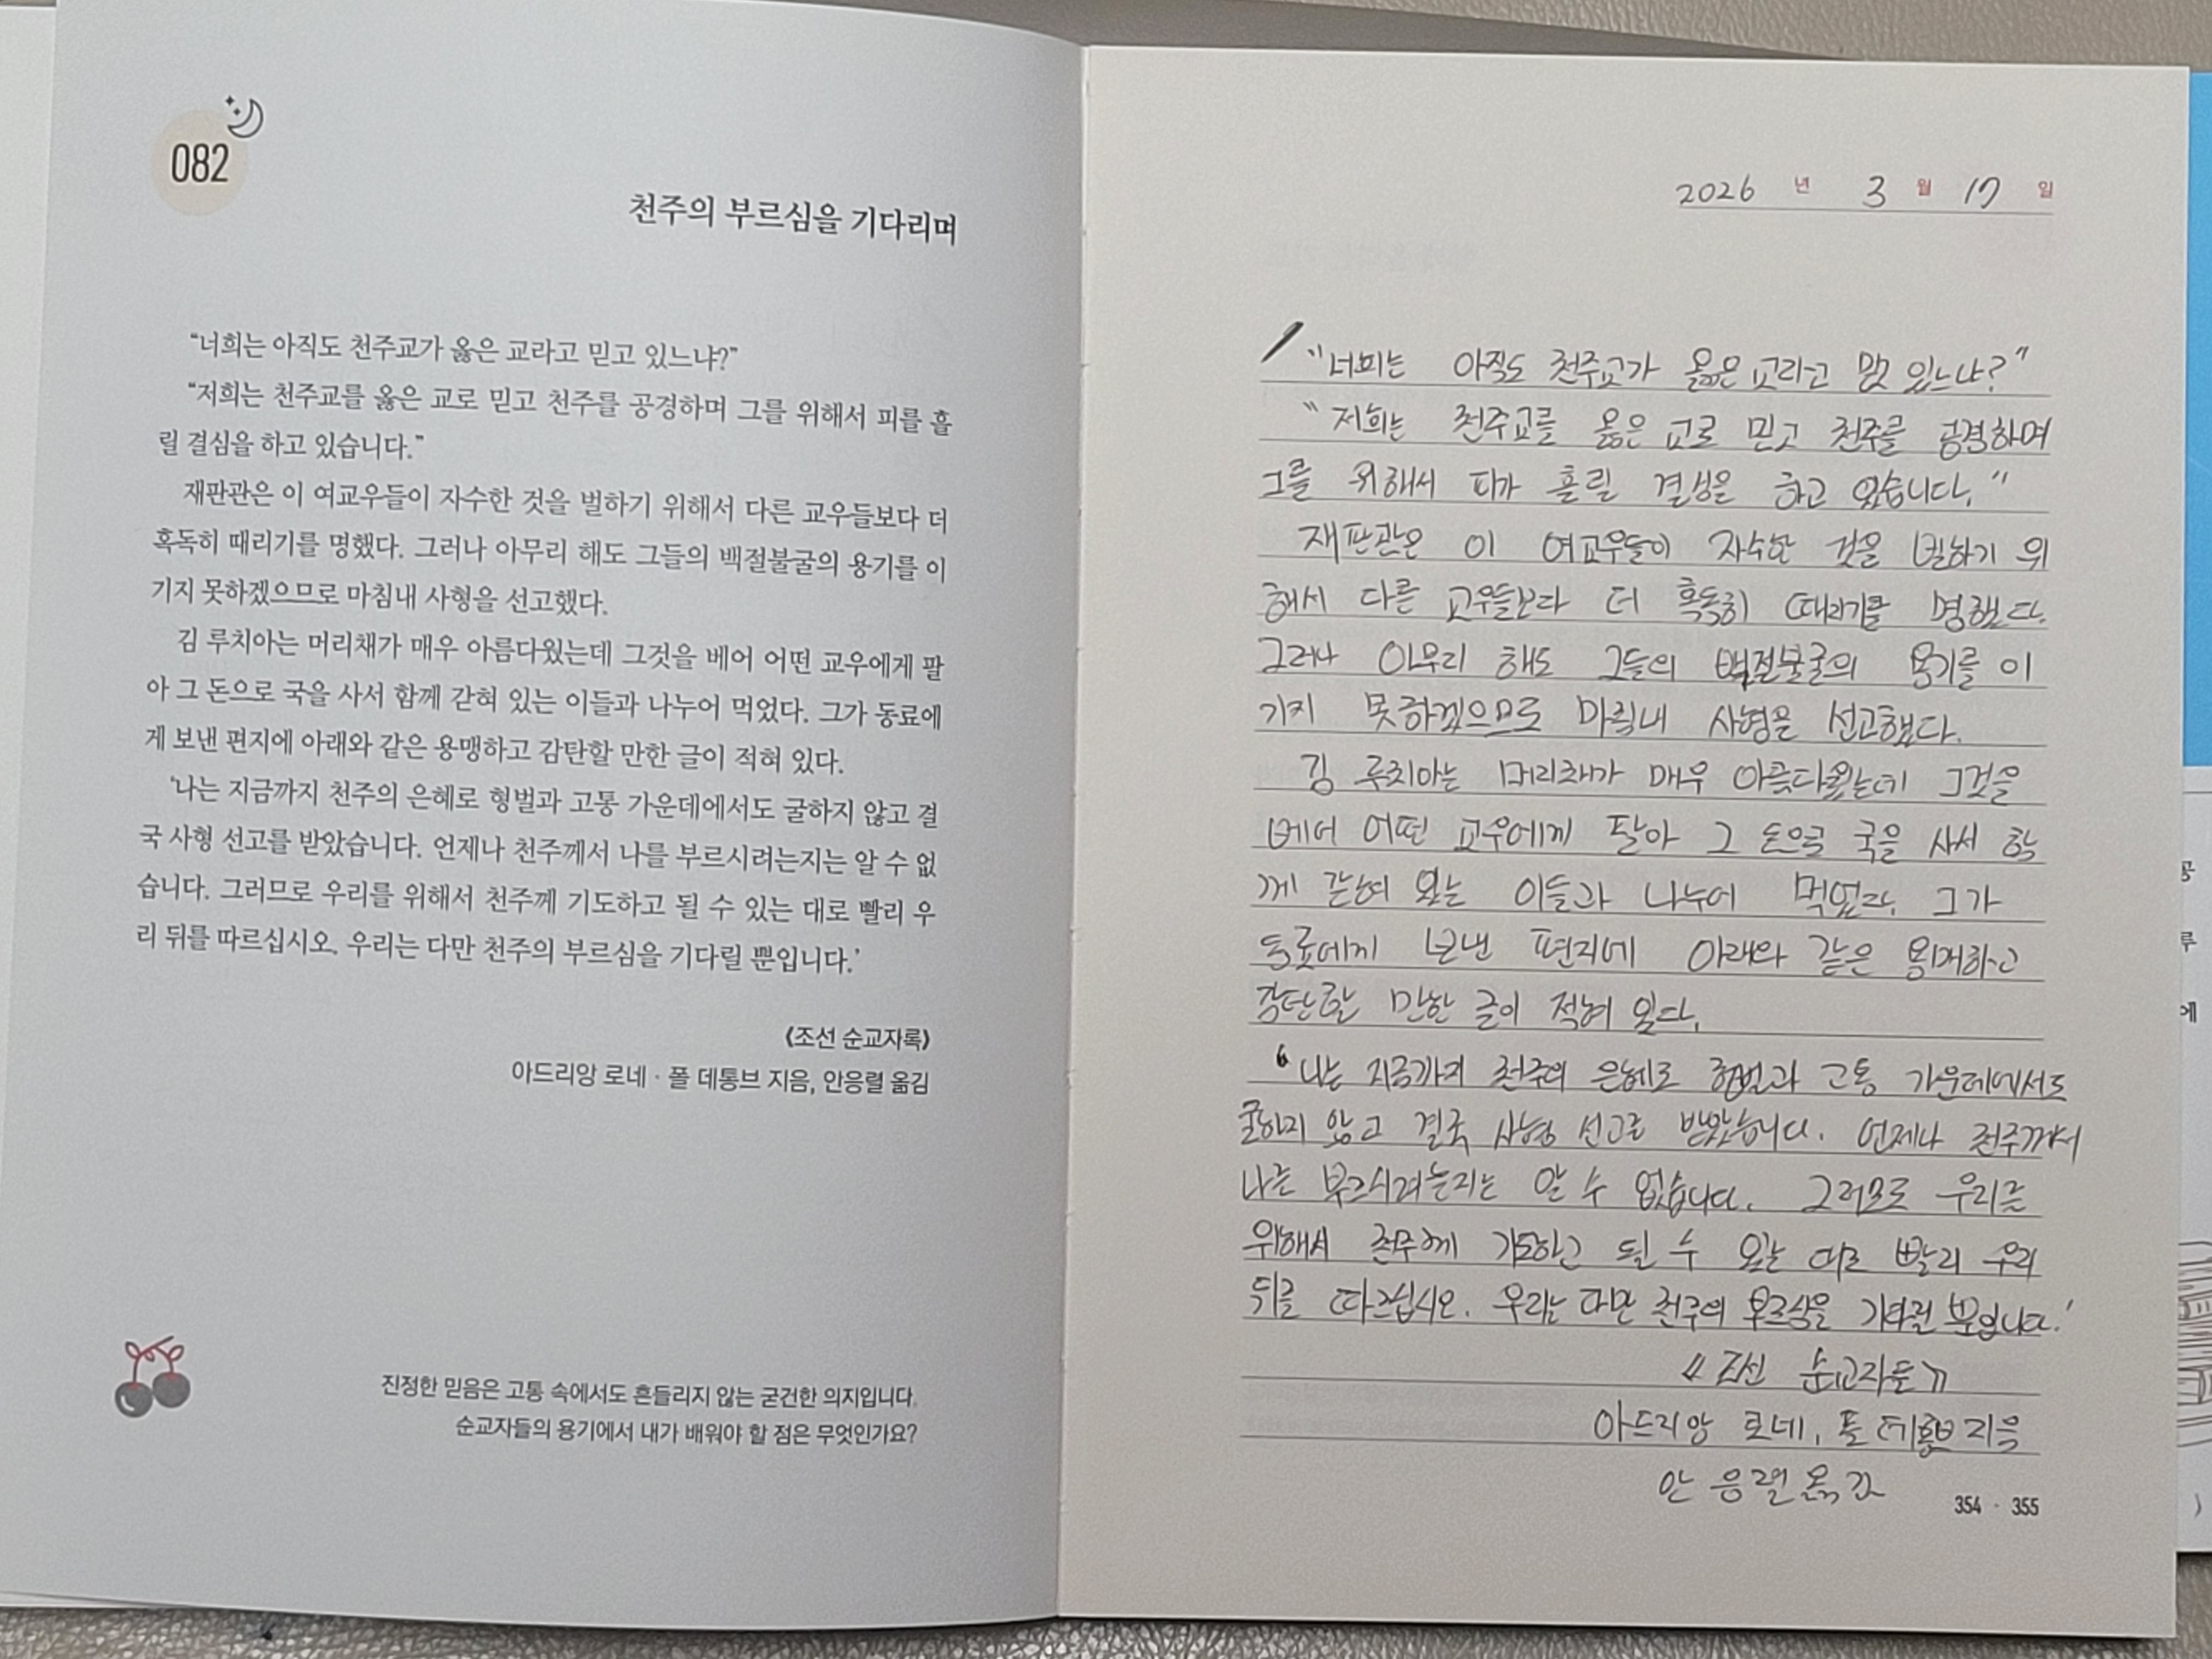 082
천주의 부르심을 기다리며
“너희는 아직도 천주교가 옳은 교라고 믿고 있느냐?”
“저희는 천주교를 옳은 교로 믿고 천주를 공경하며 그를 위해서 피를 흘
릴 결심을 하고 있습니다.”
재판관은 이 여교우들이 자수한 것을 벌하기 위해서 다른 교우들보다 더
혹독히 때리기를 명했다. 그러나 아무리 해도 그들의 백절불굴의 용기를 이
기지 못하겠으므로 마침내 사형을 선고했다.
김 루치아는 머리채가 매우 아름다웠는데 그것을 베어 어떤 교우에게 팔
아 그 돈으로 국을 사서 함께 갇혀 있는 이들과 나누어 먹었다. 그가 동료에
게 보낸 편지에 아래와 같은 용맹하고 감탄할 만한 글이 적혀 있다.
‘나는 지금까지 천주의 은혜로 형벌과 고통 가운데에서도 굴하지 않고 결
국 사형 선고를 받았습니다. 언제나 천주께서 나를 부르시려는지는 알 수 없
습니다. 그러므로 우리를 위해서 천주께 기도하고 될 수 있는 대로 빨리 우
리 뒤를 따르십시오. 우리는 다만 천주의 부르심을 기다릴 뿐입니다.’
《조선 순교자록》
아드리앙 로네 · 폴 데통브 지음, 안응렬 옮김
진정한 믿음은 고통 속에서도 흔들리지 않는 굳건한 의지입니다.
순교자들의 용기에서 내가 배워야 할 점은 무엇인가요?
2026 년 3 월 17 일
“너희는 아직도 천주교가 옳은 교라고 있느냐?”
“저희는 천주교를 옳은 교로 믿고 천주를 공경하며
그를 위해서 피가 흘릴 결심을 하고 있습니다.”
재판관은 이 여교우들이 자수한 것을 벌하기 위
해서 다른 교우들보다 더 혹독히 때리기를 명했다.
그러나 아무리 해도 그들의 백절불굴의 용기를 이
기지 못하겠으므로 마침내 사형을 선고했다.
김 루치아는 머리채가 매우 아름다웠는데 그것을
베어 어떤 교우에게 팔아 그 돈으로 국을 사서 함
께 갇혀 있는 이들과 나누어 먹었다. 그가
동료에게 보낸 편지에 아래와 같은 하고
감탄할 만한 글이 적혀 있다.
‘나는 지금까지 천주의 은혜로 형벌과 고통 가운데에서도
굴하지 않고 결국 사형 선고를 받았습니다. 언제나 천주께서
나를 부르시려는지는 알 수 없습니다. 그러므로 우리를
위해서 천주께 기도하고 될 수 있는 대로 빨리 우리
뒤를 따르십시오. 우리는 다만 천주의 부르심을 기다릴 뿐입니다.’
《조선 순교자들》
아드리앙 로네, 폴 데통브 지음
안응렬 옮김
354 · 355